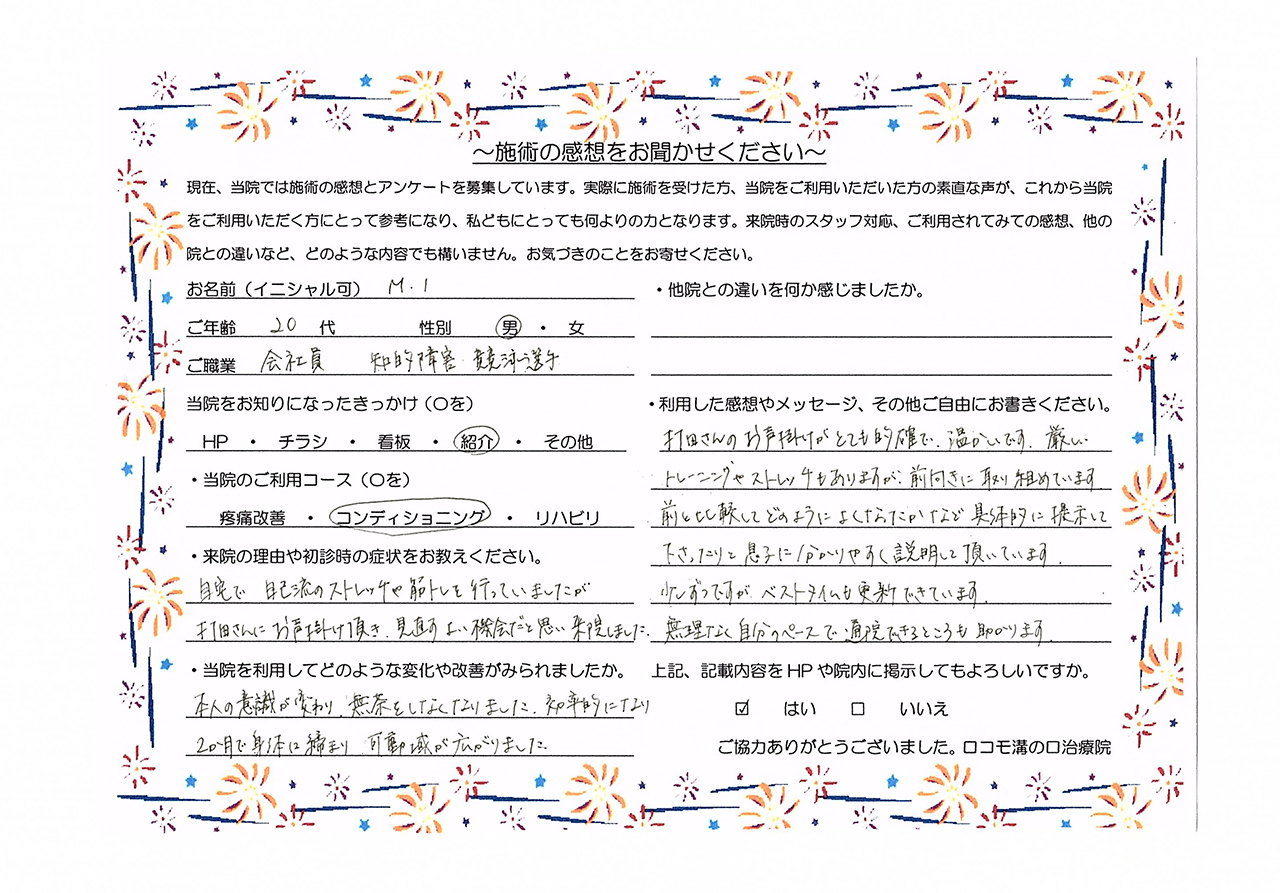 ～施術の感想をお聞かせください～
現在、当院では施術の感想とアンケートを募集しています。実際に施術を受けた方、当院をご利用いただいた方の素直な声が、これから当院
をご利用いただく方にとって参考になり、私どもにとっても何よりの力となります。来院時のスタッフ対応、ご利用されてみての感想、他の
院との違いなど、どのような内容でも構いません。お気づきのことをお寄せください。
お名前（イニシャル可） M.I
ご年齢 20 代 性別 男 ・ 女
ご職業 会社員 知的障害 競泳選手
当院をお知りになったきっかけ（○を）
HP ・ チラシ ・ 看板 ・ 紹介 ・ その他
・当院のご利用コース（○を）
疼痛改善 ・ コンディショニング ・ リハビリ
・来院の理由や初診時の症状をお教えください。
自宅で 自己流のストレッチや筋トレを行っていましたが
打田さんにお声掛け頂き、見直すよい機会だと思い来院しました。
・当院を利用してどのような変化や改善がみられましたか。
本人の意識が変わり、無茶をしなくなりました。効率的になり
2か月で身体は締まり 可動域が広がりました。
・他院との違いを何か感じましたか。
・利用した感想やメッセージ、その他ご自由にお書きください。
打田さんのお声掛けがとても的確で、温かいです。厳しい
トレーニングやストレッチもありますが、前向きに取り組めています。
前と比較してどのようによくなったかなど具体的に提示して
下さったりと息子に分かりやすく説明して頂いています。
少しずつですが、ベストタイムも更新できています。
無理なく自分のペースで通院できるところも助かります。
上記、記載内容をHPや院内に掲示してもよろしいですか。
☑ はい □ いいえ
ご協力ありがとうございました。ロコモ溝の口治療院